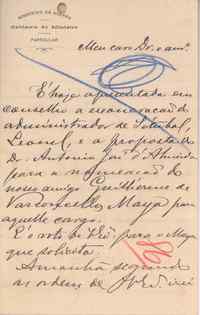 Gabinete do Ministro
PARTICULAR
Meu caro Dr. e amº.
É hoje apresentada em
conselho a exoneração do
administrador de Setubal,
Leonel, e a proposta do
Dr. Antonio José d'Almeida
para a nomeação do
nosso amigo Guilherme de
Vasconcellos Maya para
aquelle cargo.
É o voto de para o Maya
que solicita.
Amanhã segundo
as ordens de